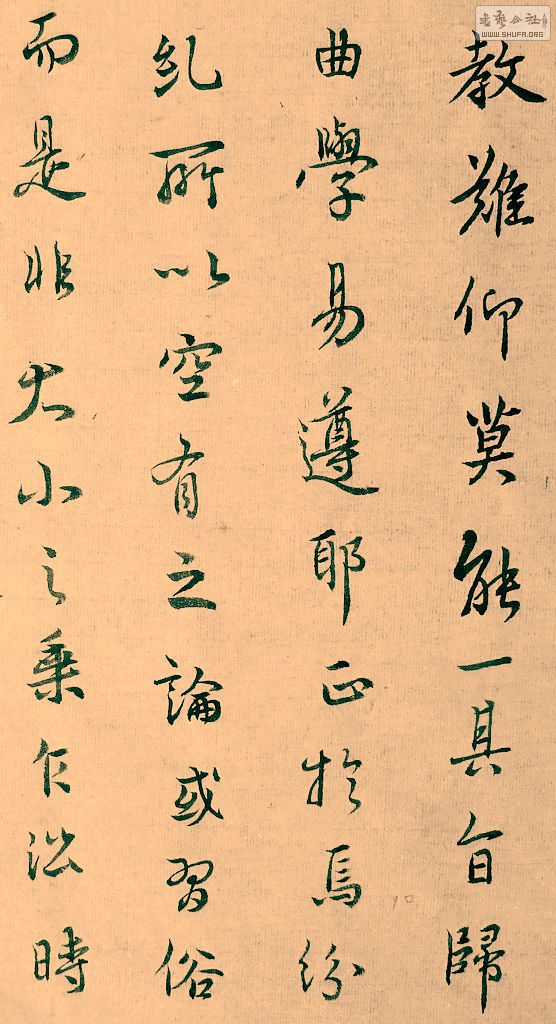 教難仰莫能一具旨歸
曲學易遵耶正於焉紛
糺所以空有之論或習俗
而是非大小之乗乍㳂時
書藝公社
WWW.SHUFA.ORG